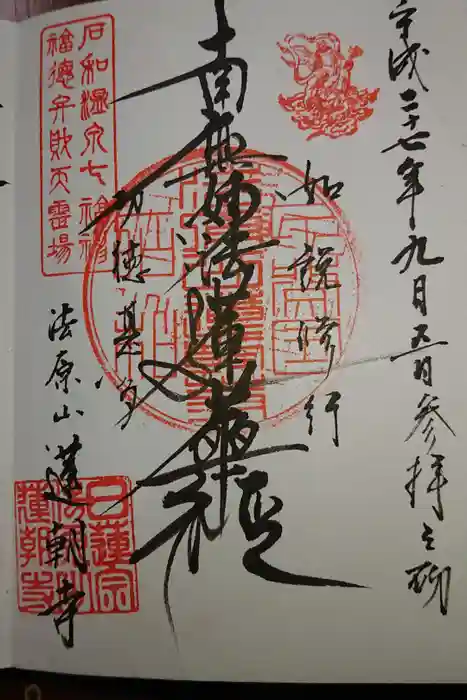 平成二十七年九月五日参拝之砌
如説修行
南無妙法蓮華経
功徳甚多
石和温泉七福神
福徳弁財天霊場
法原山
蓮朝寺
日蓮宗
蓮朝寺